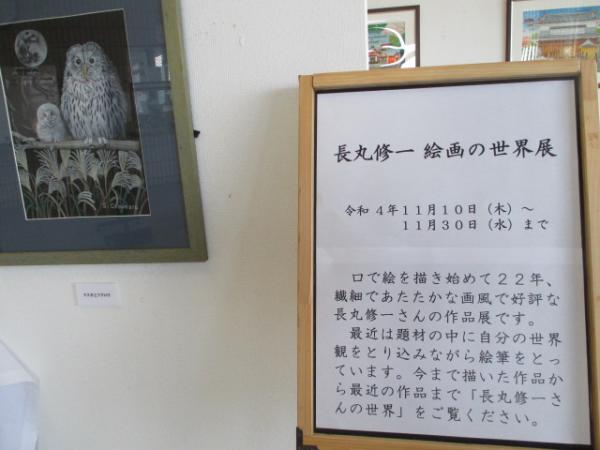 長丸修一 絵画の世界展
令和 4年11月10日（木）～
11月30日（水）まで
口で絵を描き始めて22年、
繊細であたたかな画風で好評な
長丸修一さんの作品展です。
最近は題材の中に自分の世界
観をとり込みながら絵筆をとっ
ています。今まで描いた作品か
ら最近の作品まで「長丸修一さ
んの世界」をご覧ください。